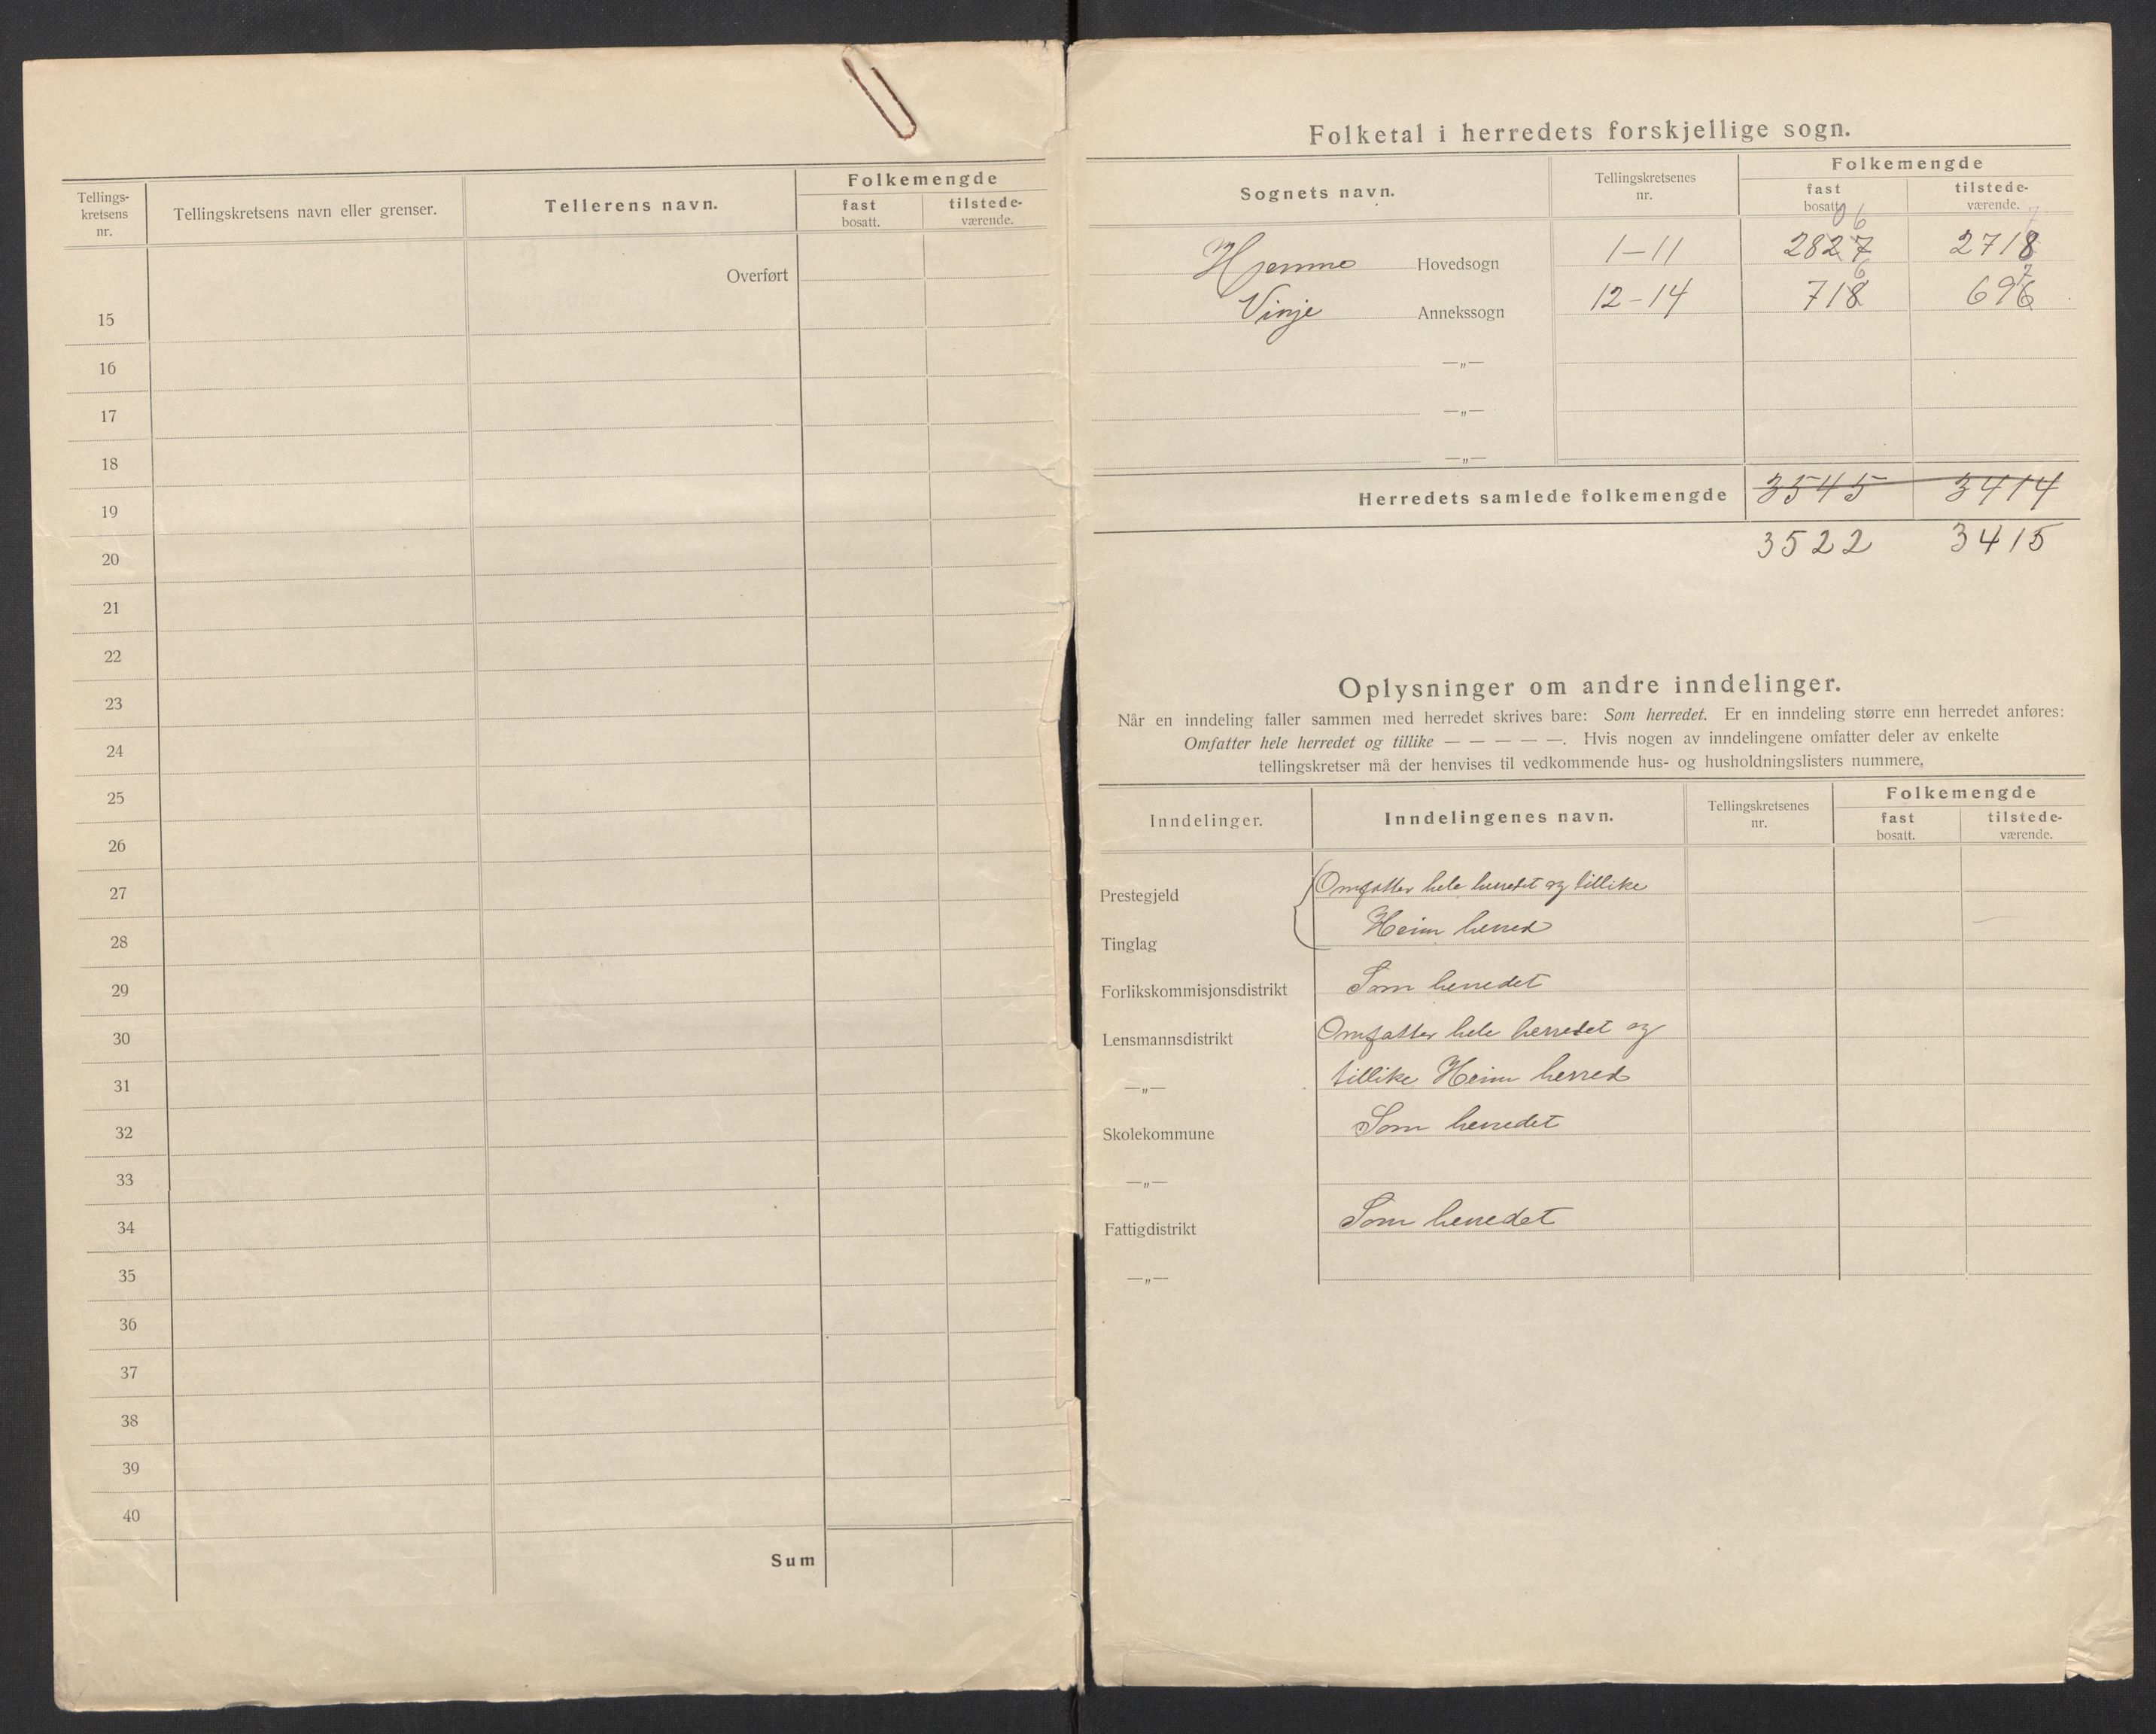 Tellings-
kretsens
nr.
Tellingskretsens navn eller grenser.
Tellerens navn.
Folkemengde
fast
bosatt.
tilstede-
værende.
Overført
15
16
17
18
19
20
21
22
23
24
25
26
27
28
29
30
31
32
33
34
35
36
37
38
39
40
Sum
Folketal i herredets forskjellige sogn.
Sognets navn.
Tellingskretsenes
nr.
Folkemengde
fast
bosatt.
tilstede-
værende.
06 7
Hemne Hovedsogn 1-11 2827 2718
6 7
Vinje Annekssogn 12-14 718 696
—„—
—„—
—„—
Herredets samlede folkemengde 3545 3414
3522 3415
Oplysninger om andre inndelinger.
Når en inndeling faller sammen med herredet skrives bare: Som herredet. Er en inndeling større enn herredet anføres:
Omfatter hele herredet og tillike — — — — —. Hvis nogen av inndelingene omfatter deler av enkelte
tellingskretser må der henvises til vedkommende hus- og husholdningslisters nummere.
Inndelinger.
Inndelingenes navn.
Tellingskretsenes
nr.
Folkemengde
fast
bosatt.
tilstede-
værende.
Prestegjeld Omfatter hele herredet og tillike
Tinglag Heim herred
Forlikskommisjonsdistrikt Som herredet
Lensmannsdistrikt Omfatter hele herredet og
—„— tillike Heim herred
Skolekommune Som herredet
—„—
Fattigdistrikt Som herredet
—„—